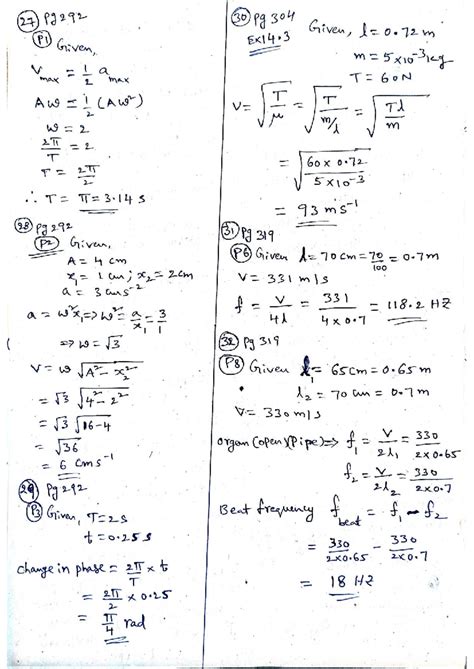 27) Pg 292
P1 Given,
V max = 1/2 a max
Aω = 1/2 (Aω²)
ω = 2
2π/T = 2
T = 2π/2
∴ T = π = 3.14 s
28) Pg 292
P2 Given,
A = 4 cm
x₁ = 1 cm; x₂ = 2 cm
a = 3 cm s⁻²
a = ω²x₁ => ω² = a/x₁ = 3/1
=> ω = √3
V = ω √(A² - x₂²)
= √3 √(4² - 2²)
= √3 √(16-4)
= √36
= 6 cm s⁻¹
29) Pg 292
P3 Given, T = 2s
t = 0.25 s
change in phase = 2π/T × t
= 2π/2 × 0.25
= π/4 rad
30) Pg 304
EX 14.3
Given, l = 0.72 m
m = 5×10⁻³ kg
T = 60 N
V = √(T/μ) = √(T/(m/l)) = √(Tl/m)
= √(60 × 0.72 / 5×10⁻³)
= 93 m s⁻¹
31) Pg 319
P6 Given l = 70 cm = 70/100 = 0.7 m
V = 331 m/s
f = V/4l = 331/(4 × 0.7) = 118.2 HZ
32) Pg 319
P8 Given l₁ = 65 cm = 0.65 m
l₂ = 70 cm = 0.7 m
V = 330 m/s
organ (open)(Pipe) => f₁ = V/2l₁ = 330/(2×0.65)
f₂ = V/2l₂ = 330/(2×0.7)
Beat frequency f beat = f₁ - f₂
= 330/(2×0.65) - 330/(2×0.7)
= 18 HZ